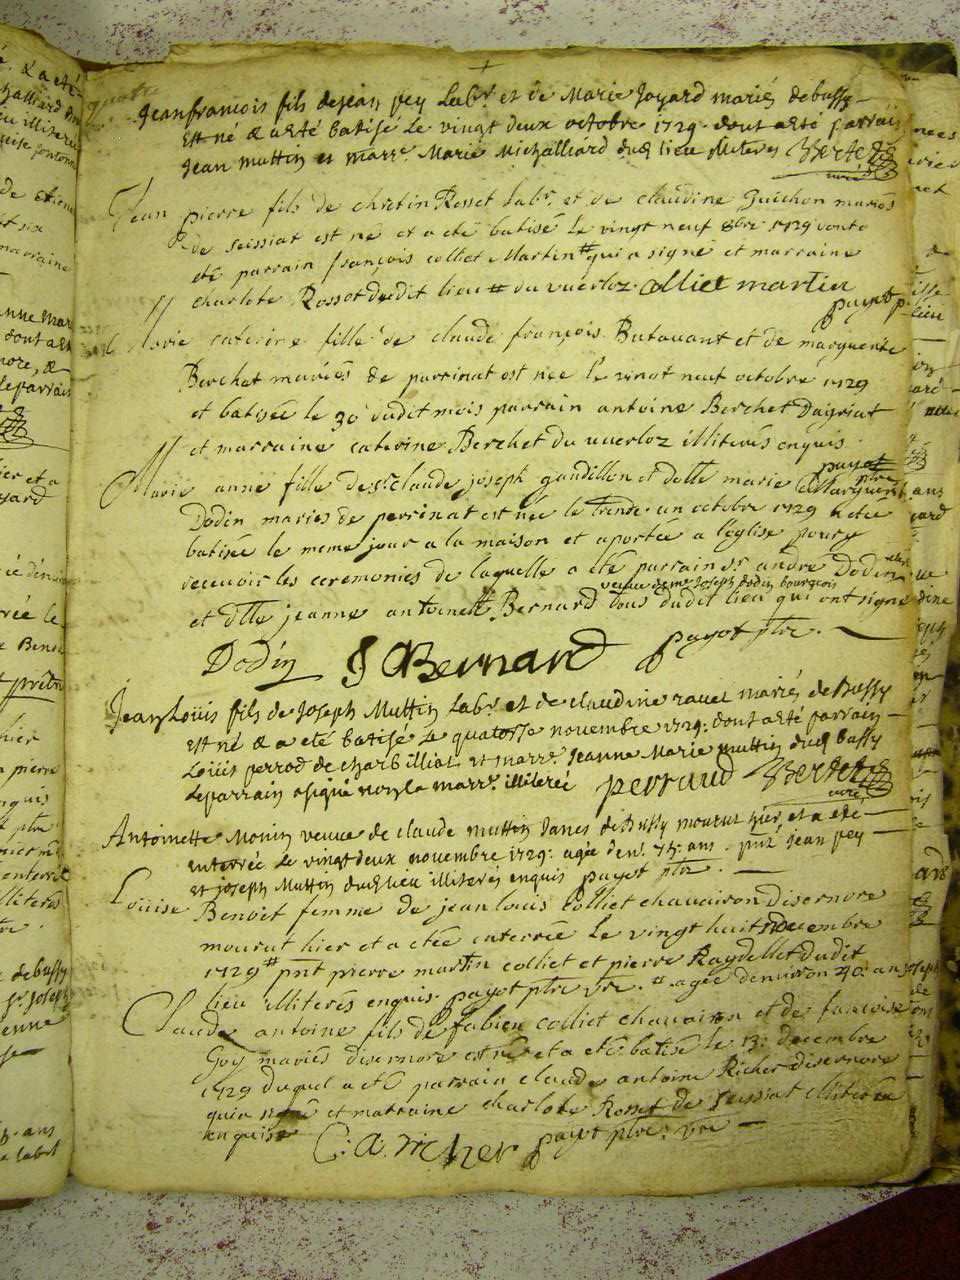 quatre
Jeanfrancois fils de Jean pey Labr. et de Marie Joyard mariés de bussy
Est né & a esté batisé Le vingt deux octobre 1729. dont a esté parrain
Jean Muttin et marre. Marie Michalliard dud lieu illiteres
curé
Jean pierre fils de chretin Rosset Labr. et de claudine Guichon mariés
de seissiat est né et a eté batisé Le vingt neuf 8bre 1729 dont a
eté parrain françois colliet Martin # qui a signé et marraine
charlote Rosset dudit lieu # du vuerloz colliet martin
payot p.
Marie caterine fille de claude françois Butavant et de marguerite
Berchet mariés de perrinat est née le vingt neuf octobre 1729
et batisée le 30 dudit mois parrain antoine Berchet Dagriat
et marraine caterine Berchet du vuerloz illiterés enquis
payot ptre
Marie anne fille de sr claude joseph gandillon et delle marie Marguerite
Dodin mariés de perrinat est née le trente un octobre 1729 et eté
batisée le meme jour a la maison et aportée a l'église pour y
recevoir les ceremonies de laquelle a été parrain sr andré Dodin
veuve de me Joseph dodin bourgeois
et dlle jeanne antoinette Bernard tous dudit lieu qui ont signé
Dodin J Bernard payot ptre.
Jean Loüis fils de Joseph Muttin Labr. et de claudine ravet mariés de Bussy
Est né & a eté batisé Le quatorse novembre 1729. dont a esté parrain
Loüis perrod de charbilliat et marre. Jeanne Marie muttin dud bussy
Le parrain a signé non la marre. illiterée perraud
curé
Antoinette Monin veuve de claude muttin Danes de Bussy mourut hier et a eté
enterrée Le vingt deux novembre 1729. agée d'en. 75. ans. pnt jean pey
et joseph Muttin dud lieu illiterés enquis payot ptre.
Loüise Benoit femme de jean louis Colliet chavairon disernore
mourut hier et a etée enterrée Le vingt huit Decembre
1729 # pnt pierre martin colliet et pierre Raydellet dudit
lieu illiterés enquis. payot ptre vre. # agée denviron 40. ans
Claude antoine fils de fabien colliet chavairon et de francoise
Goy mariés disernore est né et a eté batisé le 13. decembre
1729 duquel a eté parrain claude antoine Richer disernore
qui a signé et marraine charlote Rosset de seissiat illiterée
enquise C. a. richer payot ptre. vre